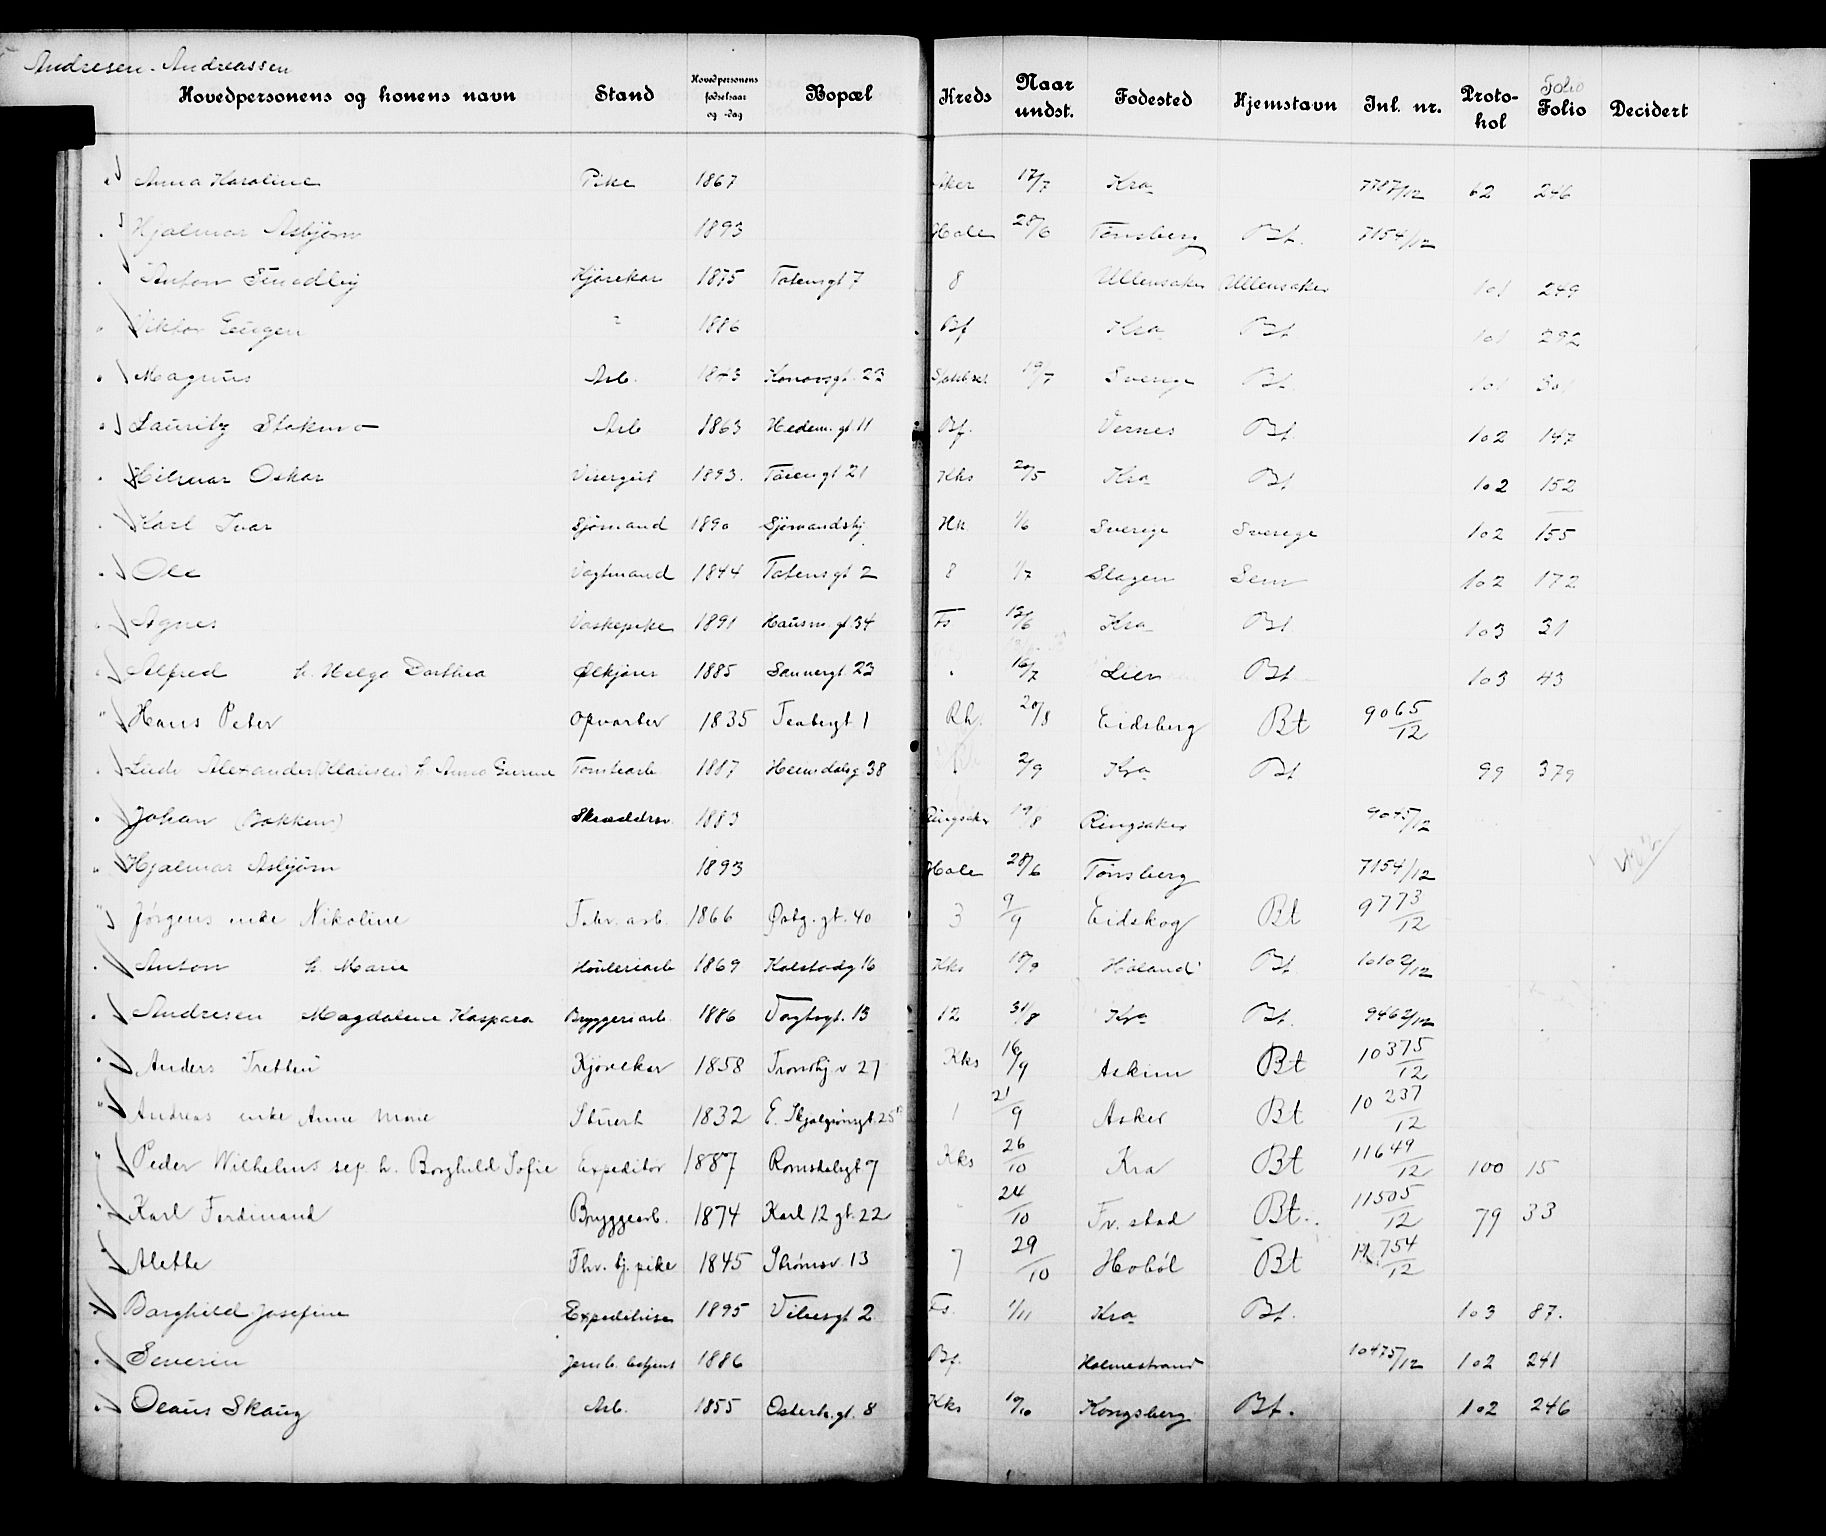 Andresen - Andreassen
Hovedpersonens og konens navn Stand Hovedpersonens fødselsaar og -dag Bopæl Kreds Naar undst. Fødested Hjemstavn Inl. nr. Protokol Folio Decidert
Folio
Anna Karoline Pike 1867 Aker 17/7 Kra 62 246
Hjalmar Asbjørn 1893 Hole 28/6 Tønsberg Bt. 7154/12
Anton Kjørekar 1875 Totensgt 7 8 Ullensaker Ullensaker 101 249
Viktor Eugen " 1886 Bf Kra Bt 101 292
Magnus Arb. 1843 22 19/7 Sverige Bt. 101 301
Lauritz Stokmo Arb 1863 Hedem. gt 11 Bf. Vernes Bt. 102 147
Hilmar Oskar Visergut 1893. Tøiengt 21 Kks 20/5 Kra Bt 102 152
Karl Ivar Sjømand 1890 Sjømandshj Hk. 1/6 Sverige Sverige 102 155
Ole Vagtmand 1844 Totensgt 2 8 1/7 Slagen Sem 102 172
Agnes Vaskepike 1891 Hausm. gt 34 Fs 12/6 Kra Bt. 103 31
Alfred h. Helga Dorthea Ølkjører 1885 Sannergt 23 " 16/7 Lier Bt 103 43
Hans Peter Opvarter 1835 Teatergt 1 Rh. 20/8 Eidsberg Bt 9065/12
Ludv Alexander (Klausen) h. Anna Tomtearb 1887 Heimdalsg 38 2/9 Kra Bt 99 379
Johan (Bakken) Skræddersv. 1883 Ringsaker 19/8 Ringsaker 9045/12
Hjalmar Asbjørn 1893 Hole 28/6 Tønsberg 7154/12
Jørgens enke Nikoline Fabr. arb. 1866 Østg. gt. 40 3 9/9 Eidskog Bt 9773/12
Anton h. Marie Høvleriarb 1869 Kolstadg 16 Kks 18/9 Høland Bt 10102/12
Andresen Magdalene Kaspara Bryggeriarb. 1886 Vogtsgt. 13 12 31/8 Kra Bt. 9462/12
Anders Tretten Kjørekar 1858 Tronhj v 27 Kks 16/9 Askim Bt 10375/12
Andreas enke Anne Marie Stuert 1832 E. Skjalgsønsgt. 25 1 21/9 Asker Bt 10237/12
Peder Wilhelms sep. h. Borghild Sofie Expeditør 1887 Romsdalsgt 7 Kks 26/10 Kra Bt 11649/12 100 15
Karl Ferdinand Bryggearb. 1874 Karl 12 gt. 22 " 24/10 Fr. stad Bt. 11505/12 79 33
Alette Fhv. tj. pike 1845 Strømsv 13 7 29/10 Hobøl Bt 754/12
Borghild Josefine Expeditrise 1895 Vibesgt 2 Fs. 1/11 Kra Bt. 103 87.
Severin Jernb. betjent 1886 Bf. Holmestrand 10475/12 102 241
Olaus Skaug Arb. 1855 Osterh. gt. 8 Kks 19/10 Kongsberg Bt. 102 246